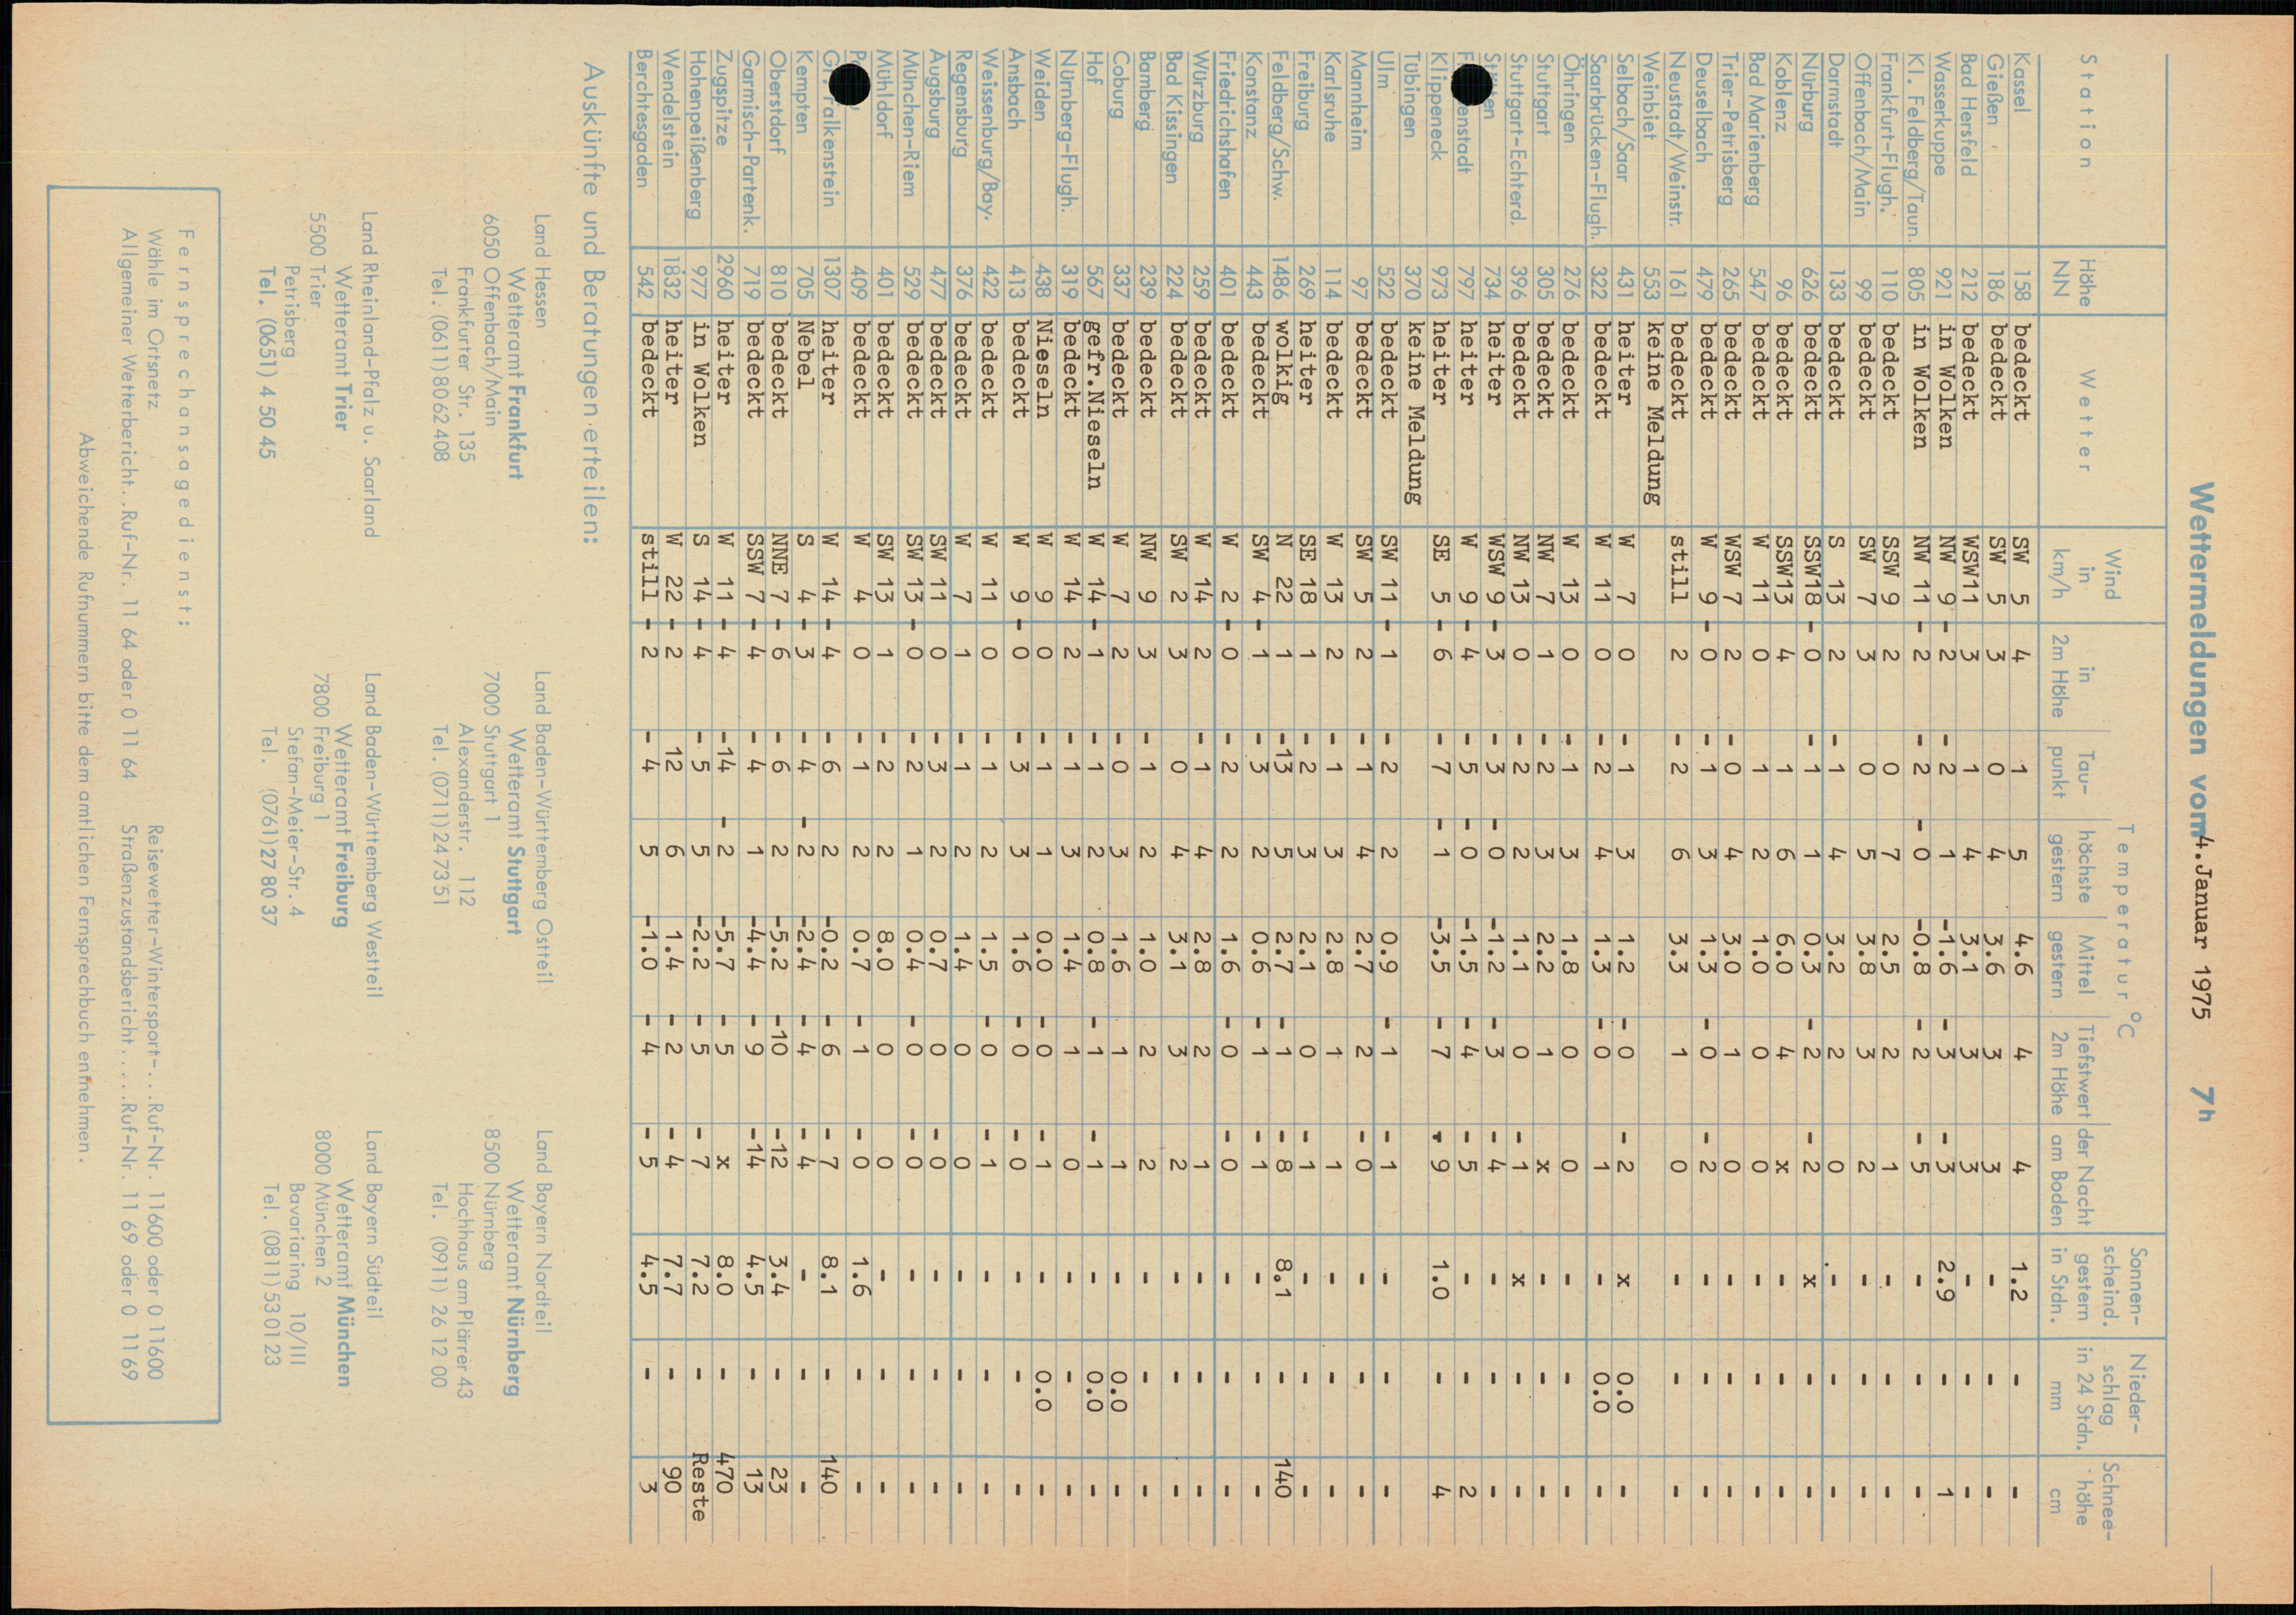 Wettermeldungen vom 4. Januar 1975 7h
Station Höhe NN Wetter Wind in km/h Temperatur °C in 2m Höhe Tau-punkt höchste gestern Mittel gestern Tiefstwert der Nacht 2m Höhe am Boden Sonnen-scheind. gestern in Stdn. Nieder-schlag in 24 Stdn. mm Schnee-höhe cm
Kassel 158 bedeckt SW 5 4 1 5 4.6 4 4 1.2 - -
Gießen 186 bedeckt SW 5 3 0 4 3.6 3 3 - - -
Bad Hersfeld 212 bedeckt WSW11 3 1 4 3.1 3 3 - - -
Wasserkuppe 921 in Wolken NW 9 - 2 - 2 1 -1.6 - 3 - 3 2.9 - 1
Kl. Feldberg/Taun. 805 in Wolken NW 11 - 2 - 2 - 0 -0.8 - 2 - 5 - - -
Frankfurt-Flugh. 110 bedeckt SSW 9 2 0 7 2.5 2 1 - - -
Offenbach/Main 99 bedeckt SW 7 3 0 5 3.8 3 2 - - -
Darmstadt 133 bedeckt S 13 2 - 1 4 3.2 2 0 - - -
Nürburg 626 bedeckt SSW18 - 0 - 1 1 0.3 - 2 - 2 x - -
Koblenz 96 bedeckt SSW13 4 1 6 6.0 4 x - - -
Bad Marienberg 547 bedeckt W 11 0 1 2 1.0 0 0 - - -
Trier-Petrisberg 265 bedeckt WSW 7 2 - 0 4 3.0 1 0 - - -
Deuselbach 479 bedeckt W 9 - 0 - 1 3 1.3 - 0 - 2 - - -
Neustadt/Weinstr. 161 bedeckt still 2 - 2 6 3.3 1 0 - - -
Weinbiet 553 keine Meldung
Selbach/Saar 431 heiter W 7 0 - 1 3 1.2 - 0 - 2 x 0.0 -
Saarbrücken-Flugh. 322 bedeckt W 11 0 - 2 4 1.3 - 0 1 - 0.0 -
Öhringen 276 bedeckt W 13 0 - 1 3 1.8 0 0 - - -
Stuttgart 305 bedeckt NW 7 1 - 2 3 2.2 1 x - - -
Stuttgart-Echterd. 396 bedeckt NW 13 0 - 2 2 1.1 0 - 1 x - -
734 heiter WSW 9 - 3 - 3 - 0 -1.2 - 3 - 4 - - -
797 heiter W 9 - 4 - 5 - 0 -1.5 - 4 - 5 - - 2
Klippeneck 973 heiter SE 5 - 6 - 7 - 1 -3.5 - 7 - 9 1.0 - 4
Tübingen 370 keine Meldung
Ulm 522 bedeckt SW 11 - 1 - 2 2 0.9 - 1 - 1 - - -
Mannheim 97 bedeckt SW 5 2 - 1 4 2.7 2 - 0 - - -
Karlsruhe 114 bedeckt W 13 2 - 1 3 2.8 1 1 - - -
Freiburg 269 heiter SE 18 1 - 2 3 2.1 0 - 1 - - -
Feldberg/Schw. 1486 wolkig N 22 - 1 -13 5 2.7 - 1 - 8 8.1 - 140
Konstanz 443 bedeckt SW 4 - 1 - 3 2 0.6 - 1 - 1 - - -
Friedrichshafen 401 bedeckt W 2 - 0 - 2 2 1.6 - 0 - 0 - - -
Würzburg 259 bedeckt W 14 2 - 1 4 2.8 2 1 - - -
Bad Kissingen 224 bedeckt SW 2 3 0 4 3.1 3 2 - - -
Bamberg 239 bedeckt NW 9 3 - 1 2 1.0 2 2 - - -
Coburg 337 bedeckt W 7 2 - 0 3 1.6 1 1 - 0.0 -
Hof 567 gefr.Nieseln W 14 - 1 - 1 2 0.8 - 1 - 1 - 0.0 -
Nürnberg-Flugh. 319 bedeckt W 14 2 - 1 3 1.4 1 0 - - -
Weiden 438 Nieseln W 9 0 - 1 1 0.0 - 0 - 1 - 0.0 -
Ansbach 413 bedeckt W 9 - 0 - 3 3 1.6 - 0 - 0 - - -
Weissenburg/Bay. 422 bedeckt W 11 0 - 1 2 1.5 - 0 - 1 - - -
Regensburg 376 bedeckt W 7 1 - 1 2 1.4 0 0 - - -
Augsburg 477 bedeckt SW 11 0 - 3 2 0.7 0 - 0 - - -
München-Riem 529 bedeckt SW 13 - 0 - 2 1 0.4 - 0 - 0 - - -
Mühldorf 401 bedeckt SW 13 1 - 2 2 8.0 0 0 - - -
409 bedeckt W 4 0 - 1 2 0.7 - 1 - 0 1.6 - -
Gr. Falkenstein 1307 heiter W 14 - 4 - 6 2 -0.2 - 6 - 7 8.1 - 140
Kempten 705 Nebel S 4 - 3 - 4 - 2 -2.4 - 4 - 4 - - -
Oberstdorf 810 bedeckt NNE 7 - 6 - 6 2 -5.2 -10 -12 3.4 - 23
Garmisch-Partenk. 719 bedeckt SSW 7 - 4 - 4 1 -4.4 - 9 -14 4.5 - 13
Zugspitze 2960 heiter W 11 - 4 -14 - 2 -5.7 - 5 x 8.0 - 470
Hohenpeißenberg 977 in Wolken S 14 - 4 - 5 5 -2.2 - 5 - 7 7.2 - Reste
Wendelstein 1832 heiter W 22 - 2 12 6 1.4 - 2 - 4 7.7 - 90
Berchtesgaden 542 bedeckt still - 2 - 4 5 -1.0 - 4 - 5 4.5 - 3
Auskünfte und Beratungen erteilen:
Land Hessen
Wetteramt Frankfurt
6050 Offenbach/Main
Frankfurter Str. 135
Tel.: (0611) 80 62 408
Land Baden-Württemberg Ostteil
Wetteramt Stuttgart
7000 Stuttgart 1
Alexanderstr. 112
Tel. (0711) 24 73 51
Land Bayern Nordteil
Wetteramt Nürnberg
8500 Nürnberg
Hochhaus am Plärrer 43
Tel. (0911) 26 12 00
Land Rheinland-Pfalz u. Saarland
Wetteramt Trier
5500 Trier
Petrisberg
Tel. (0651) 4 50 45
Land Baden-Württemberg Westteil
Wetteramt Freiburg
7800 Freiburg 1
Stefan-Meier-Str. 4
Tel. (0761) 27 80 37
Land Bayern Südteil
Wetteramt München
8000 München 2
Bavariaring 10/III
Tel. (0811) 53 01 23
Fernsprechansagedienst:
Wähle im Ortsnetz Reisewetter-Wintersport-...Ruf-Nr. 11600 oder 0 11600
Allgemeiner Wetterbericht..Ruf-Nr. 11 64 oder 0 11 64 Straßenzustandsbericht.....Ruf-Nr. 11 69 oder 0 11 69
Abweichende Rufnummern bitte dem amtlichen Fernsprechbuch entnehmen.